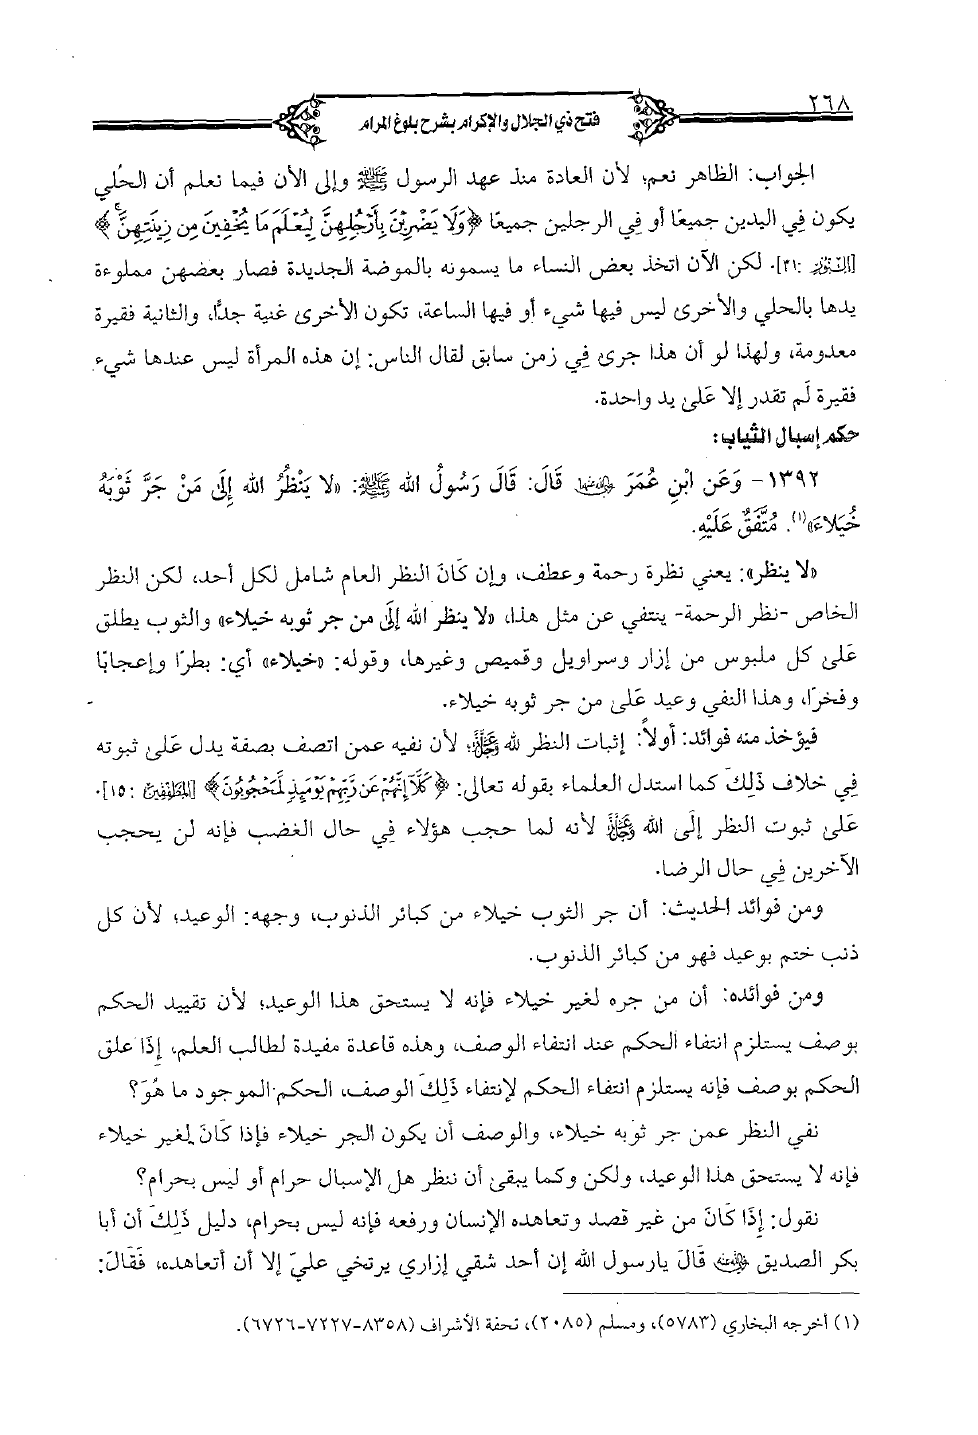 ٢٦٨
فتح ذي الجلال والإكرام بشرح بلوغ المرام
الجواب: الظاهر نعم؛ لأن العادة منذ عهد الرسول ﷺ وإلى الأن فيما نعلم أن الحُلي
يكون فِي اليدين جميعًا أو فِي الرجلين جميعًا ﴿وَلَا يَضْرِبْنَ بِأَرْجُلِهِنَّ لِيُعْلَمَ مَا يُخْفِينَ مِن زِينَتِهِنَّ﴾
[النور: ٣١]. لكن الآن اتخذ بعض النساء ما يسمونه بالموضة الجديدة فصار بعضهن مملوءة
يدها بالحلي والأخرى ليس فيها شيء أو فيها الساعة، تكون الأخرى غنية جدًّا، والثانية فقيرة
معدومة، ولهذا لو أن هذا جرى فِي زمن سابق لقال الناس: إن هذه المرأة ليس عندها شيء
فقيرة لَم تقدر إلا عَلىٰ يد واحدة.
حكم إسبال الثياب:
١٣٩٢- وَعَن ابْنِ عُمَرَ رضي الله عنهما قَالَ: قَالَ رَسُولُ الله ﷺ: «لا يَنْظُرُ الله إِلَى مَنْ جَرَّ ثَوْبَهُ
خُيَلاءَ»(١). مُتَّفَقٌ عَلَيْهِ.
«لا ينظر»: يعني نظرة رحمة وعطف، وإن كَانَ النظر العام شامل لكل أحد، لكن النظر
الخاص -نظر الرحمة- ينتفي عن مثل هذا، «لا ينظر الله إلَى من جر ثوبه خيلاء» والثوب يطلق
عَلىٰ كل ملبوس من إزار وسراويل وقميص وغيرها، وقوله: «خيلاء» أي: بطرًا وإعجابًا
وفخرًا، وهذا النفي وعيد عَلىٰ من جر ثوبه خيلاء.
فيؤخذ منه فوائد: أولاً: إثبات النظر لله عز وجل؛ لأن نفيه عمن اتصف بصفة يدل عَلىٰ ثبوته
فِي خلاف ذَلِكَ كما استدل العلماء بقوله تعالى: ﴿كَلَّا إِنَّهُمْ عَن رَّبِّهِمْ يَوْمَئِذٍ لَّمَحْجُوبُونَ﴾ [المطففين: ١٥].
عَلىٰ ثبوت النظر إلَى الله عز وجل لأنه لما حجب هؤلاء فِي حال الغضب فإنه لن يحجب
الآخرين فِي حال الرضا.
ومن فوائد الحديث: أن جر الثوب خيلاء من كبائر الذنوب، وجهه: الوعيد؛ لأن كل
ذنب ختم بوعيد فهو من كبائر الذنوب.
ومن فوائده: أن من جره لغير خيلاء فإنه لا يستحق هذا الوعيد؛ لأن تقييد الحكم
بوصف يستلزم انتفاء الحكم عند انتفاء الوصف، وهذه قاعدة مفيدة لطالب العلم، إذَا علق
الحكم بوصف فإنه يستلزم انتفاء الحكم لإنتفاء ذَلِكَ الوصف، الحكم الموجود ما هُوَ؟
نفي النظر عمن جر ثوبه خيلاء، والوصف أن يكون الجر خيلاء فإذا كَانَ لغير خيلاء
فإنه لا يستحق هذا الوعيد، ولكن وكما يبقى أن ننظر هل الإسبال حرام أو ليس بحرام؟
نقول: إذَا كَانَ من غير قصد وتعاهده الإنسان ورفعه فإنه ليس بحرام، دليل ذَلِكَ أن أبا
بكر الصديق رضي الله عنه قَالَ يارسول الله إن أحد شقي إزاري يرتخي عليّ إلا أن أتعاهده، فَقَالَ:
(١) أخرجه البخاري (٥٧٨٣)، ومسلم (٢٠٨٥)، تحفة الأشراف (٨٣٥٨-٧٢٢٧-٦٧٢٦).